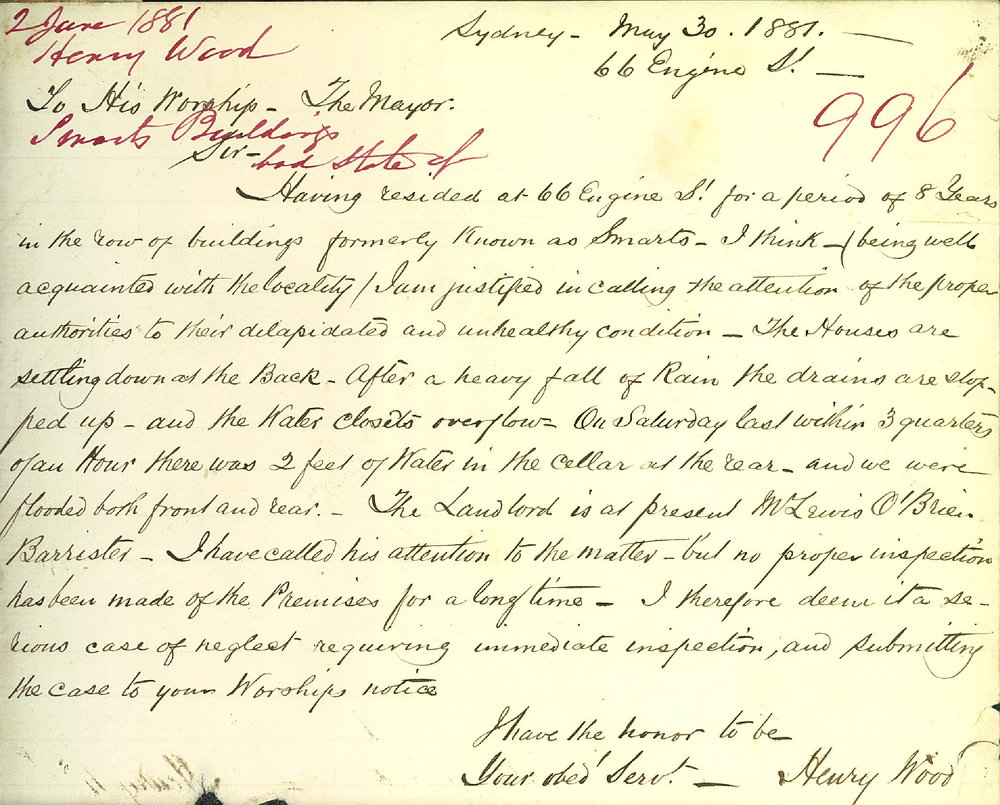 2 June 1881
Henry Wood
Sydney - May 30. 1881. —
66 Engine St. —
996
To His Worship - The Mayor.
Smarts Buildings
bad state of
Sir -
Having resided at 66 Engine St. for a period of 8 Years
in the row of buildings formerly Known as Smarts - I think - (being well
acquainted with the locality) I am justified in calling the attention of the proper
authorities to their dilapidated and unhealthy condition - The Houses are
settling down at the Back - After a heavy fall of Rain the drains are stop-
ped up - and the Water closets overflow - On Saturday last within 3 quarters
of an Hour there was 2 feet of Water in the cellar at the rear - and we were
flooded both front and rear. - The Landlord is at present Mr Lewis O'Brien
Barrister - I have called his attention to the matter - but no proper inspection
has been made of the Premises for a long time - I therefore deem it a se-
rious case of neglect requiring immediate inspection, and submitting
the case to your Worships notice
I have the honor to be
Your obedt Servt. — Henry Wood